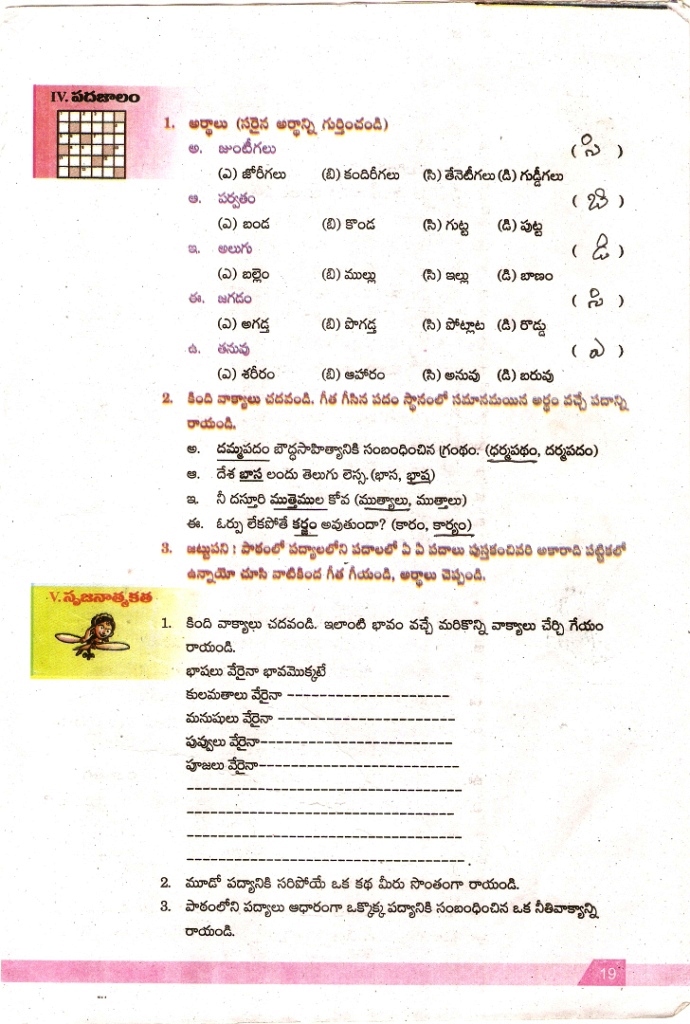 IV. పదజాలం
1. అర్థాలు (సరైన అర్థాన్ని గుర్తించండి)
అ. జుంటీగలు ( సి )
(ఎ) జోరీగలు (బి) కందిరీగలు (సి) తేనెటీగలు (డి) గుడ్డీగలు
ఆ. పర్వతం ( బి )
(ఎ) బండ (బి) కొండ (సి) గుట్ట (డి) పుట్ట
ఇ. అలుగు ( డి )
(ఎ) బల్లెం (బి) ముల్లు (సి) ఇల్లు (డి) బాణం
ఈ. జగడం ( సి )
(ఎ) అగడ్త (బి) పొగడ్త (సి) పోట్లాట (డి) రొడ్డు
ఉ. తనువు ( ఎ )
(ఎ) శరీరం (బి) ఆహారం (సి) అనువు (డి) బరువు
2. కింది వాక్యాలు చదవండి. గీత గీసిన పదం స్థానంలో సమానమయిన అర్థం వచ్చే పదాన్ని
రాయండి.
అ. దమ్మపదం బౌద్ధసాహిత్యానికి సంబంధించిన గ్రంథం. (ధర్మపథం, దర్మపదం)
ఆ. దేశ బాస లందు తెలుగు లెస్స.(భాస, భాష)
ఇ. నీ దస్తూరి ముత్తెముల కోవ (ముత్యాలు, ముత్తాలు)
ఈ. ఓర్పు లేకపోతే కర్జం అవుతుందా? (కారం, కార్యం)
3. జట్టుపని : పాఠంలో పద్యాలలోని పదాలలో ఏ ఏ పదాలు పుస్తకంచివరి అకారాది పట్టికలో
ఉన్నాయో చూసి వాటికింద గీత గీయండి, అర్థాలు చెప్పండి.
V. సృజనాత్మకత
1. కింది వాక్యాలు చదవండి. ఇలాంటి భావం వచ్చే మరికొన్ని వాక్యాలు చేర్చి గేయం
రాయండి.
భాషలు వేరైనా భావమొక్కటే
కులమతాలు వేరైనా --------------------
మనుషులు వేరైనా ----------------------
పువ్వులు వేరైనా------------------------
పూజలు వేరైనా-------------------------
----------------------------------
---------------------------------
----------------------------------
-----------------------------------.
2. మూడో పద్యానికి సరిపోయే ఒక కథ మీరు సొంతంగా రాయండి.
3. పాఠంలోని పద్యాలు ఆధారంగా ఒక్కొక్క పద్యానికి సంబంధించిన ఒక నీతివాక్యాన్ని
రాయండి.
19